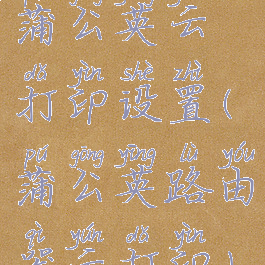 蒲公英云
dǎ yìn shè zhì
打印设置(
pú gōng yīng lù yóu
蒲公英路由
qì yún dǎ yìn
器云打印)